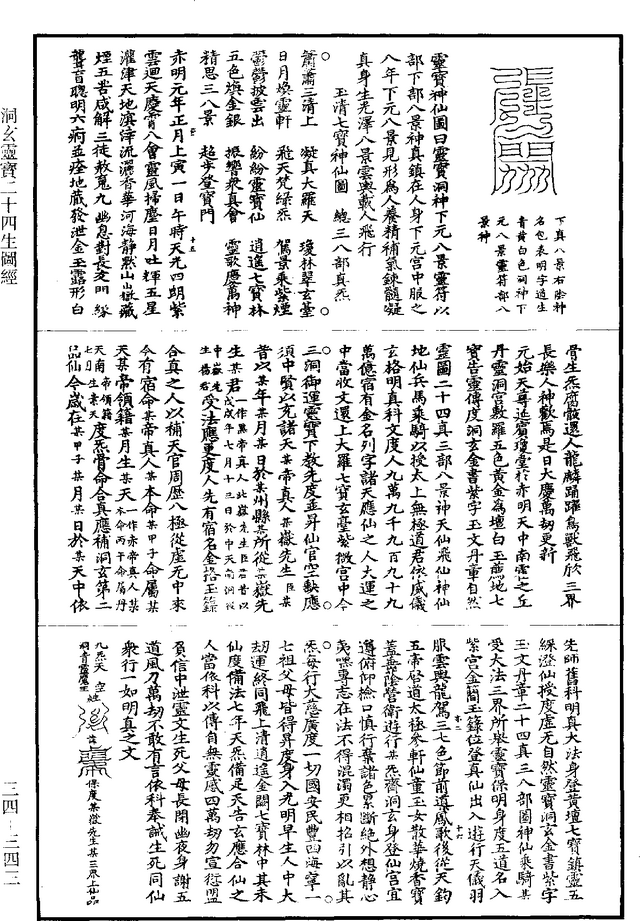 下真八景右陰神
名包表明字道生
青黄白色祠神下
元八景靈符部八
景神
靈寶神仙圖曰靈寶洞神下元八景靈符以
部下部八景神真鎮在人身下元宫中服之
八年下元八景見形為人養精補氣鍊髓凝
真身生光澤八景雲輿載人飛行
玉清七寶神仙圖 總三八部真炁
蕭蕭三清上 凝真大羅天 瓊林翠玄臺
日月煥靈軒 飛天梵緑炁 駕景乘紫煙
鬱鬱披雲出 紛紛靈寶仙 逍遥七寶林
五色煥金銀 振響衆真會 靈歌慶萬神
精思三八景 超步登寶門
十五
赤明元年正月上寅一日午時天光四朗紫
雲迴天慶霄八會靈風掃塵日月吐輝五星
灌津天地溟涬流灑香華河海静默山嶽藏
煙五苦咸解三徒赦寃九幽息對長夜門
聾盲聰明六痾盖痊地藏發泄金玉露形白
骨生炁歷骸還人龍麟踊躍鳥獸飛欣三界
長樂人神歡焉是日大慶萬劫更新
元始天尊延賓瓊堂於赤明天中南雲之丘
丹靈洞宫敷羅五色黄金為壇白玉薦地七
寶告靈傳度洞玄金書紫字玉文丹章自然
靈圖二十四真三部八景神天仙飛仙神仙
地仙兵馬乘騎以授太上無極道君依威儀
玄格明真科文度人九萬九千九百九十九
萬億宿有金名列字諸天應仙之人大運之
中當收文還上大羅七寶玄臺紫微宫中今
三洞御運靈寶下教先度並昇仙官空缺應
須中賢以充諸天某帝真人某嶽先生臣某
昔以某年某月某日於某州縣某所從某嶽先
生某君一作黑帝真人北嶽先生臣君昔以
戊戌年七月十三日於中天南洞從
中嶽先
生稽君受法應更度人先有宿名金格玉籙
合真之人以補天官周歷八極從虛无中來
今有宿命某帝真人某本命某甲子命屬某
天某帝領籍某月生某天一作赤帝真人某
本命丙午命屬丹
天南帝領籍
七日生素天度死骨命合真應補洞玄第二
品仙今歲在某甲子某月某日於某天中依
先師舊科明真大法身登黄壇七寶鎮靈五
綵澄仙授度虛无自然靈寶洞玄金書紫字
玉文丹章二十四真三八部圖神仙乘騎某
受大法三界所舉靈寶保明身度五道名入
紫宫金簡玉籙位登真仙出入遊行天儀羽
服雲輿龍駕三七色節前導鳳歌後從天鈞
五帝啓道太極參軒仙童玉女散華燒香寶
蓋輿䕃營衛遊行某炁齋洞玄身登仙宫宜
遵俯仰檢口慎行棄諸色累斷絶外想静心
夷嘿專志在法不得混濁更相招引以亂其
炁每行大慈廣度一切國安民豐四海寧一
七祖父母皆得昇度身入光明早生人中大
劫運終同飛上清逍遥金闕七寶林中其未
仙度備法七年天炁備足天告玄應合仙之
人當依科以傳自無靈感四萬劫勿宣衍盟
負信中泄靈文生死父母長閉幽夜身謝五
道風刀萬劫不敢有言依科奉誠生死同仙
衆行一如明真之文
九炁天 空姓
洞青靈魔王
諱
保度某嶽先生某三界上仙品
洞玄靈寶二十四生圖經
三四—三四三